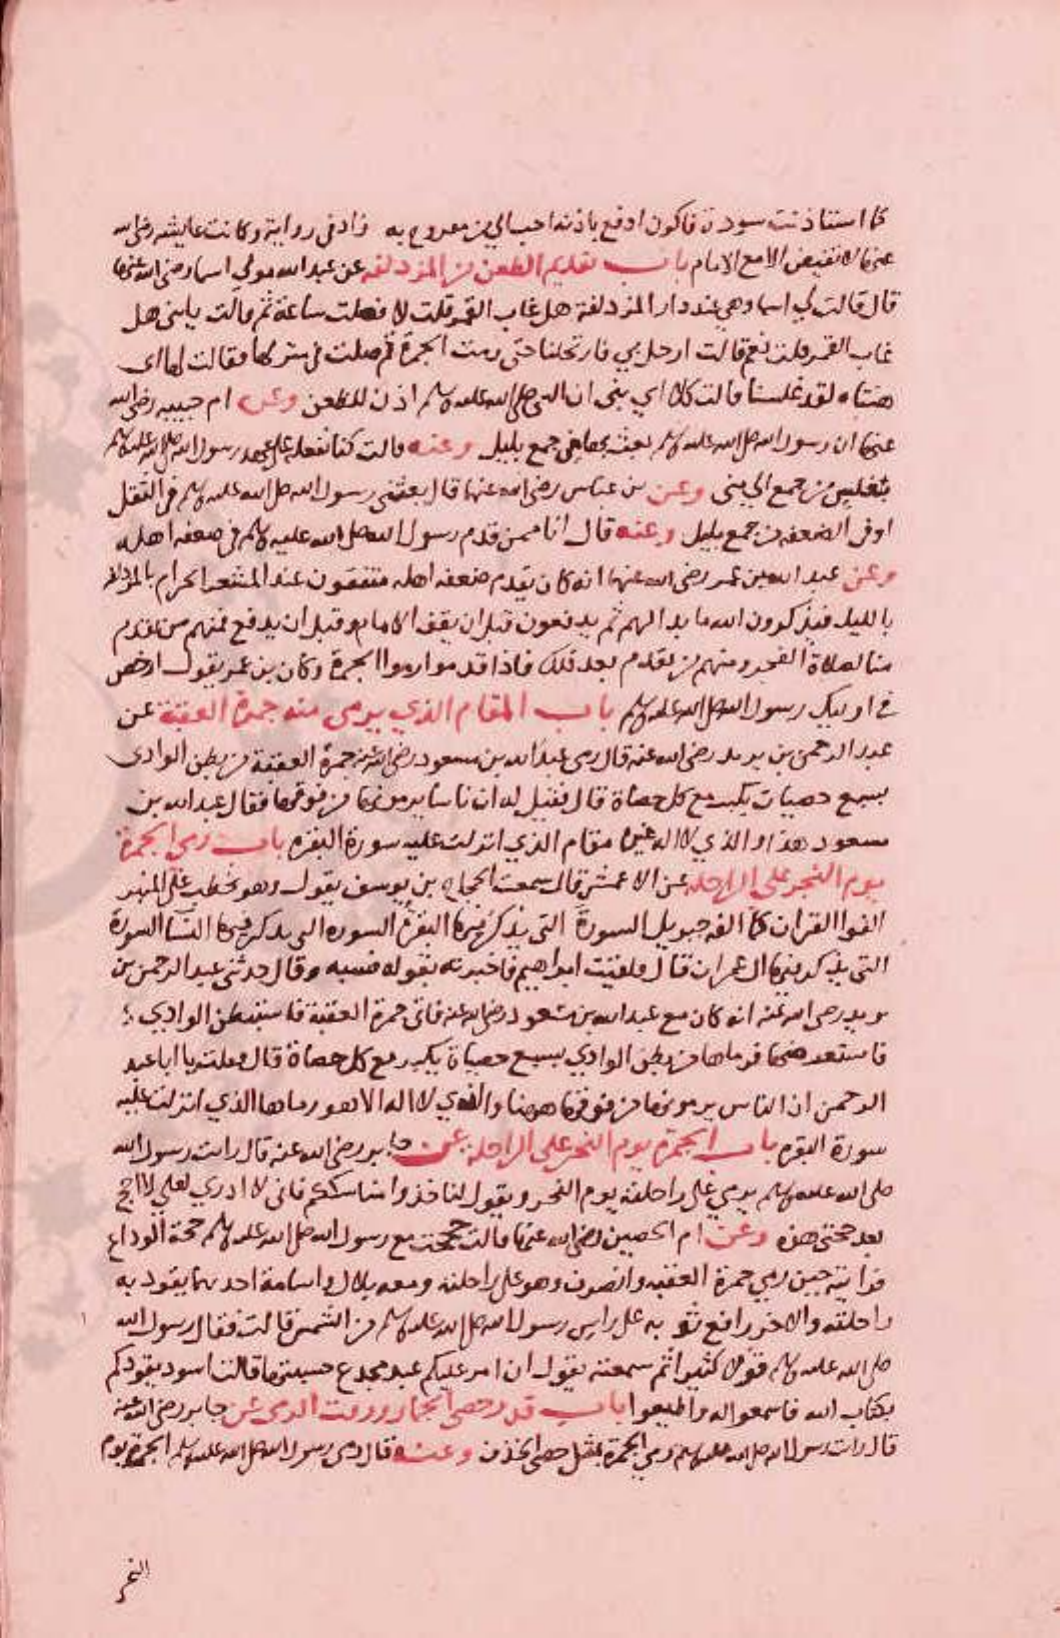 كما استاذنت سودة فاكون ادفع باذنه احب الي من مفروح به زاد في رواية وكانت عايشه رضي الله
عنها لا تفيض الا مع الامام باب تقديم الظعن من المزدلفه عن عبد الله مولى اسما رضي الله عنها
قال قالت لي اسما وهي عند دار المزدلفة هل غاب القمر قلت لا فصلت ساعة ثم قالت يابني هل
غاب القمر قلت نعم قالت ارحل بي فارتحلنا حتى رمت الجمرة ثم صلت في منزلها فقالت لها اي
هنتاه لقد غلسنا قالت كلا اي بني ان النبي صلى الله عليه وسلم اذن للظعن وعن ام حبيبه رضي الله
عنها ان رسول الله صلى الله عليه وسلم بعث بها من جمع بليل وعنه قالت كنا نفعله على عهد رسول الله صلى الله عليه وسلم
بغلس من جمع الى منى وعن بن عباس رضي الله عنهما قال بعثني رسول الله صلى الله عليه وسلم في الثقل
او في الضعفه من جمع بليل وعنه قال انا ممن قدم رسول الله صلى الله عليه وسلم في ضعفه اهله
وعن عبد الله بن عمر رضي الله عنهما انه كان يقدم ضعفه اهله فيقفون عند المشعر الحرام بالمزدلفه
بالليل فيذكرون الله ما بدا لهم ثم يدفعون قبل ان يقف الامام وقبل ان يدفع فمنهم من يقدم
منا لصلاة الفجر ومنهم من يقدم بعد ذلك فاذا قدموا رموا الجمرة وكان بن عمر يقول ارخص
في اوليك رسول الله صلى الله عليه وسلم باب المقام الذي يرمى منه جمرة العقبة عن
عبد الرحمن بن يزيد رضي الله عنه قال رمى عبد الله بن مسعود رضي الله عنه جمرة العقبة من بطن الوادي
بسبع حصيات يكبر مع كل حصاة قال فقيل له ان ناسا يرمونها من فوقها فقال عبد الله بن
مسعود هذا والذي لا اله غيره مقام الذي انزلت عليه سورة البقره باب رمي الجمرة
يوم النحر على الراحله عن الاعمش قال سمعت الحجاج بن يوسف يقول وهو يخطب على المنبر
الفوا القران كما الفه جبريل السورة التي يذكر فيها البقرة السوره التي يذكر فيها النسا السورة
التي يذكر فيها ال عمران قال فلقيت ابراهيم فاخبرته بقوله فسبه وقال حدثني عبد الرحمن بن
يزيد رضي الله عنه انه كان مع عبد الله بن مسعود رضي الله عنه فاتى جمرة العقبة فاستبطن الوادي
فاستعرضها فرماها من بطن الوادي بسبع حصياة يكبر مع كل حصاة قال فقلت يا ابا عبد
الرحمن ان الناس يرمونها من فوقها هو هنا والذي لا اله الا هو رماها الذي انزلت عليه
سورة البقره باب الجمرة يوم النحر على الراحلة عن جابر رضي الله عنه قال رايت رسول الله
صلى الله عليه وسلم يرمي على راحلته يوم النحر ويقول لنا خذوا مناسككم فاني لا ادري لعلي لا احج
بعد حجتي هذه وعن ام الحصين رضي الله عنها قالت حججت مع رسول الله صلى الله عليه وسلم حجة الوداع
فرايته حين رمي جمرة العقبه وانصرف وهو على راحلته ومعه بلال واسامة احدهما يقود به
راحلته والاخر رافع ثوبه على راس رسول الله صلى الله عليه وسلم من الشمس قالت فقال رسول الله
صلى الله عليه وسلم قولا كثيرا ثم سمعته يقول ان امر عليكم عبد مجدع حسبتها قالت اسود يقودكم
بكتاب الله فاسمعوا له واطيعوا باب قدر حصى الجمار ووقت الرمي عن جابر رضي الله عنه
قال رايت رسول الله صلى الله عليه وسلم رمي الجمرة بمثل حصى الخذف وعنه قال رمى رسول الله صلى الله عليه وسلم الجمرة يوم
النحر